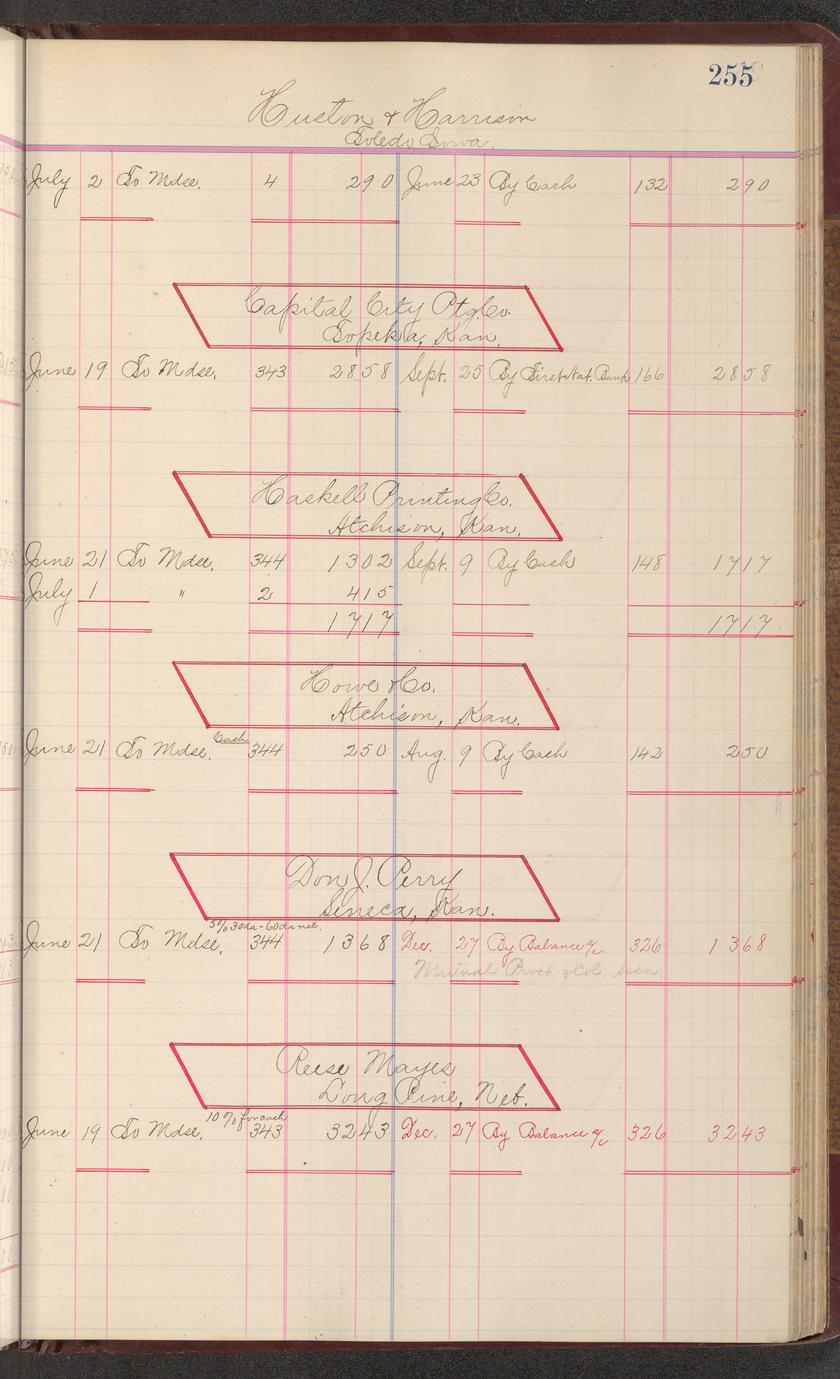 255
Huston & Harrison
Toledo Iowa.
July 2 To Mdse. 4 290 June 23 By Cash 132 290
Capital City Ptg. Co.
Topeka, Kan.
June 19 To Mdse. 343 2858 Sept. 25 By First Nat. Bank 166 2858
Haskell Printing Co.
Atchison, Kan.
June 21 To Mdse. 344 1302 Sept. 9 By Cash 148 1717
July 1 " 2 415
1717 1717
Howe & Co.
Atchison, Kan.
Cash
June 21 To Mdse. 344 250 Aug. 9 By Cash 142 250
Don J. Perry
Seneca, Kan.
5% 30da-60da net.
June 21 To Mdse. 344 1368 Dec. 27 By Balance a/c 326 1368
Mutual Proct. & Col. Assn.
Reese Mayes
Long Pine, Neb.
10% for cash
June 19 To Mdse. 343 3243 Dec. 27 By Balance a/c 326 3243